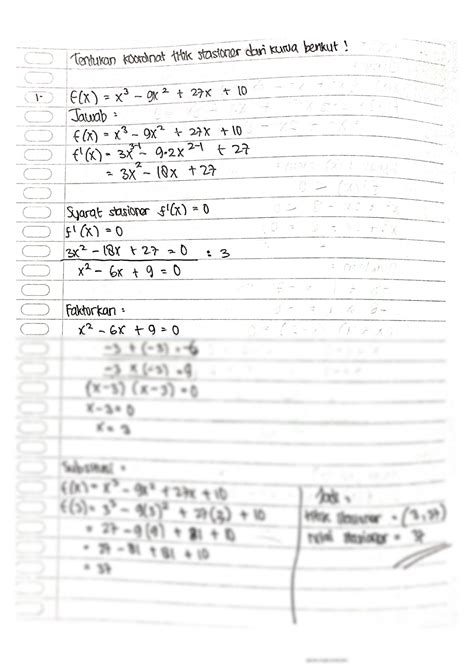 Tentukan koordinat titik stasioner dari kurva berikut !
1. f(x) = x³ - 9x² + 27x + 10
Jawab :
f(x) = x³ - 9x² + 27x + 10
f'(x) = 3x³⁻¹ - 9.2x²⁻¹ + 27
= 3x² - 18x + 27
Syarat stasioner f'(x) = 0
f'(x) = 0
3x² - 18x + 27 = 0 : 3
x² - 6x + 9 = 0
Faktorkan :
x² - 6x + 9 = 0
-3 + (-3) = -6
-3 x (-3) = 9
(x-3) (x-3) = 0
x-3 = 0
x = 3
Substitusi :
f(x) = x³ - 9x² + 27x + 10
f(3) = 3³ - 9(3)² + 27(3) + 10
= 27 - 9(9) + 81 + 10
= 27 - 81 + 81 + 10
= 37
Jadi :
titik stasioner = (3,37)
nilai stasioner = 37